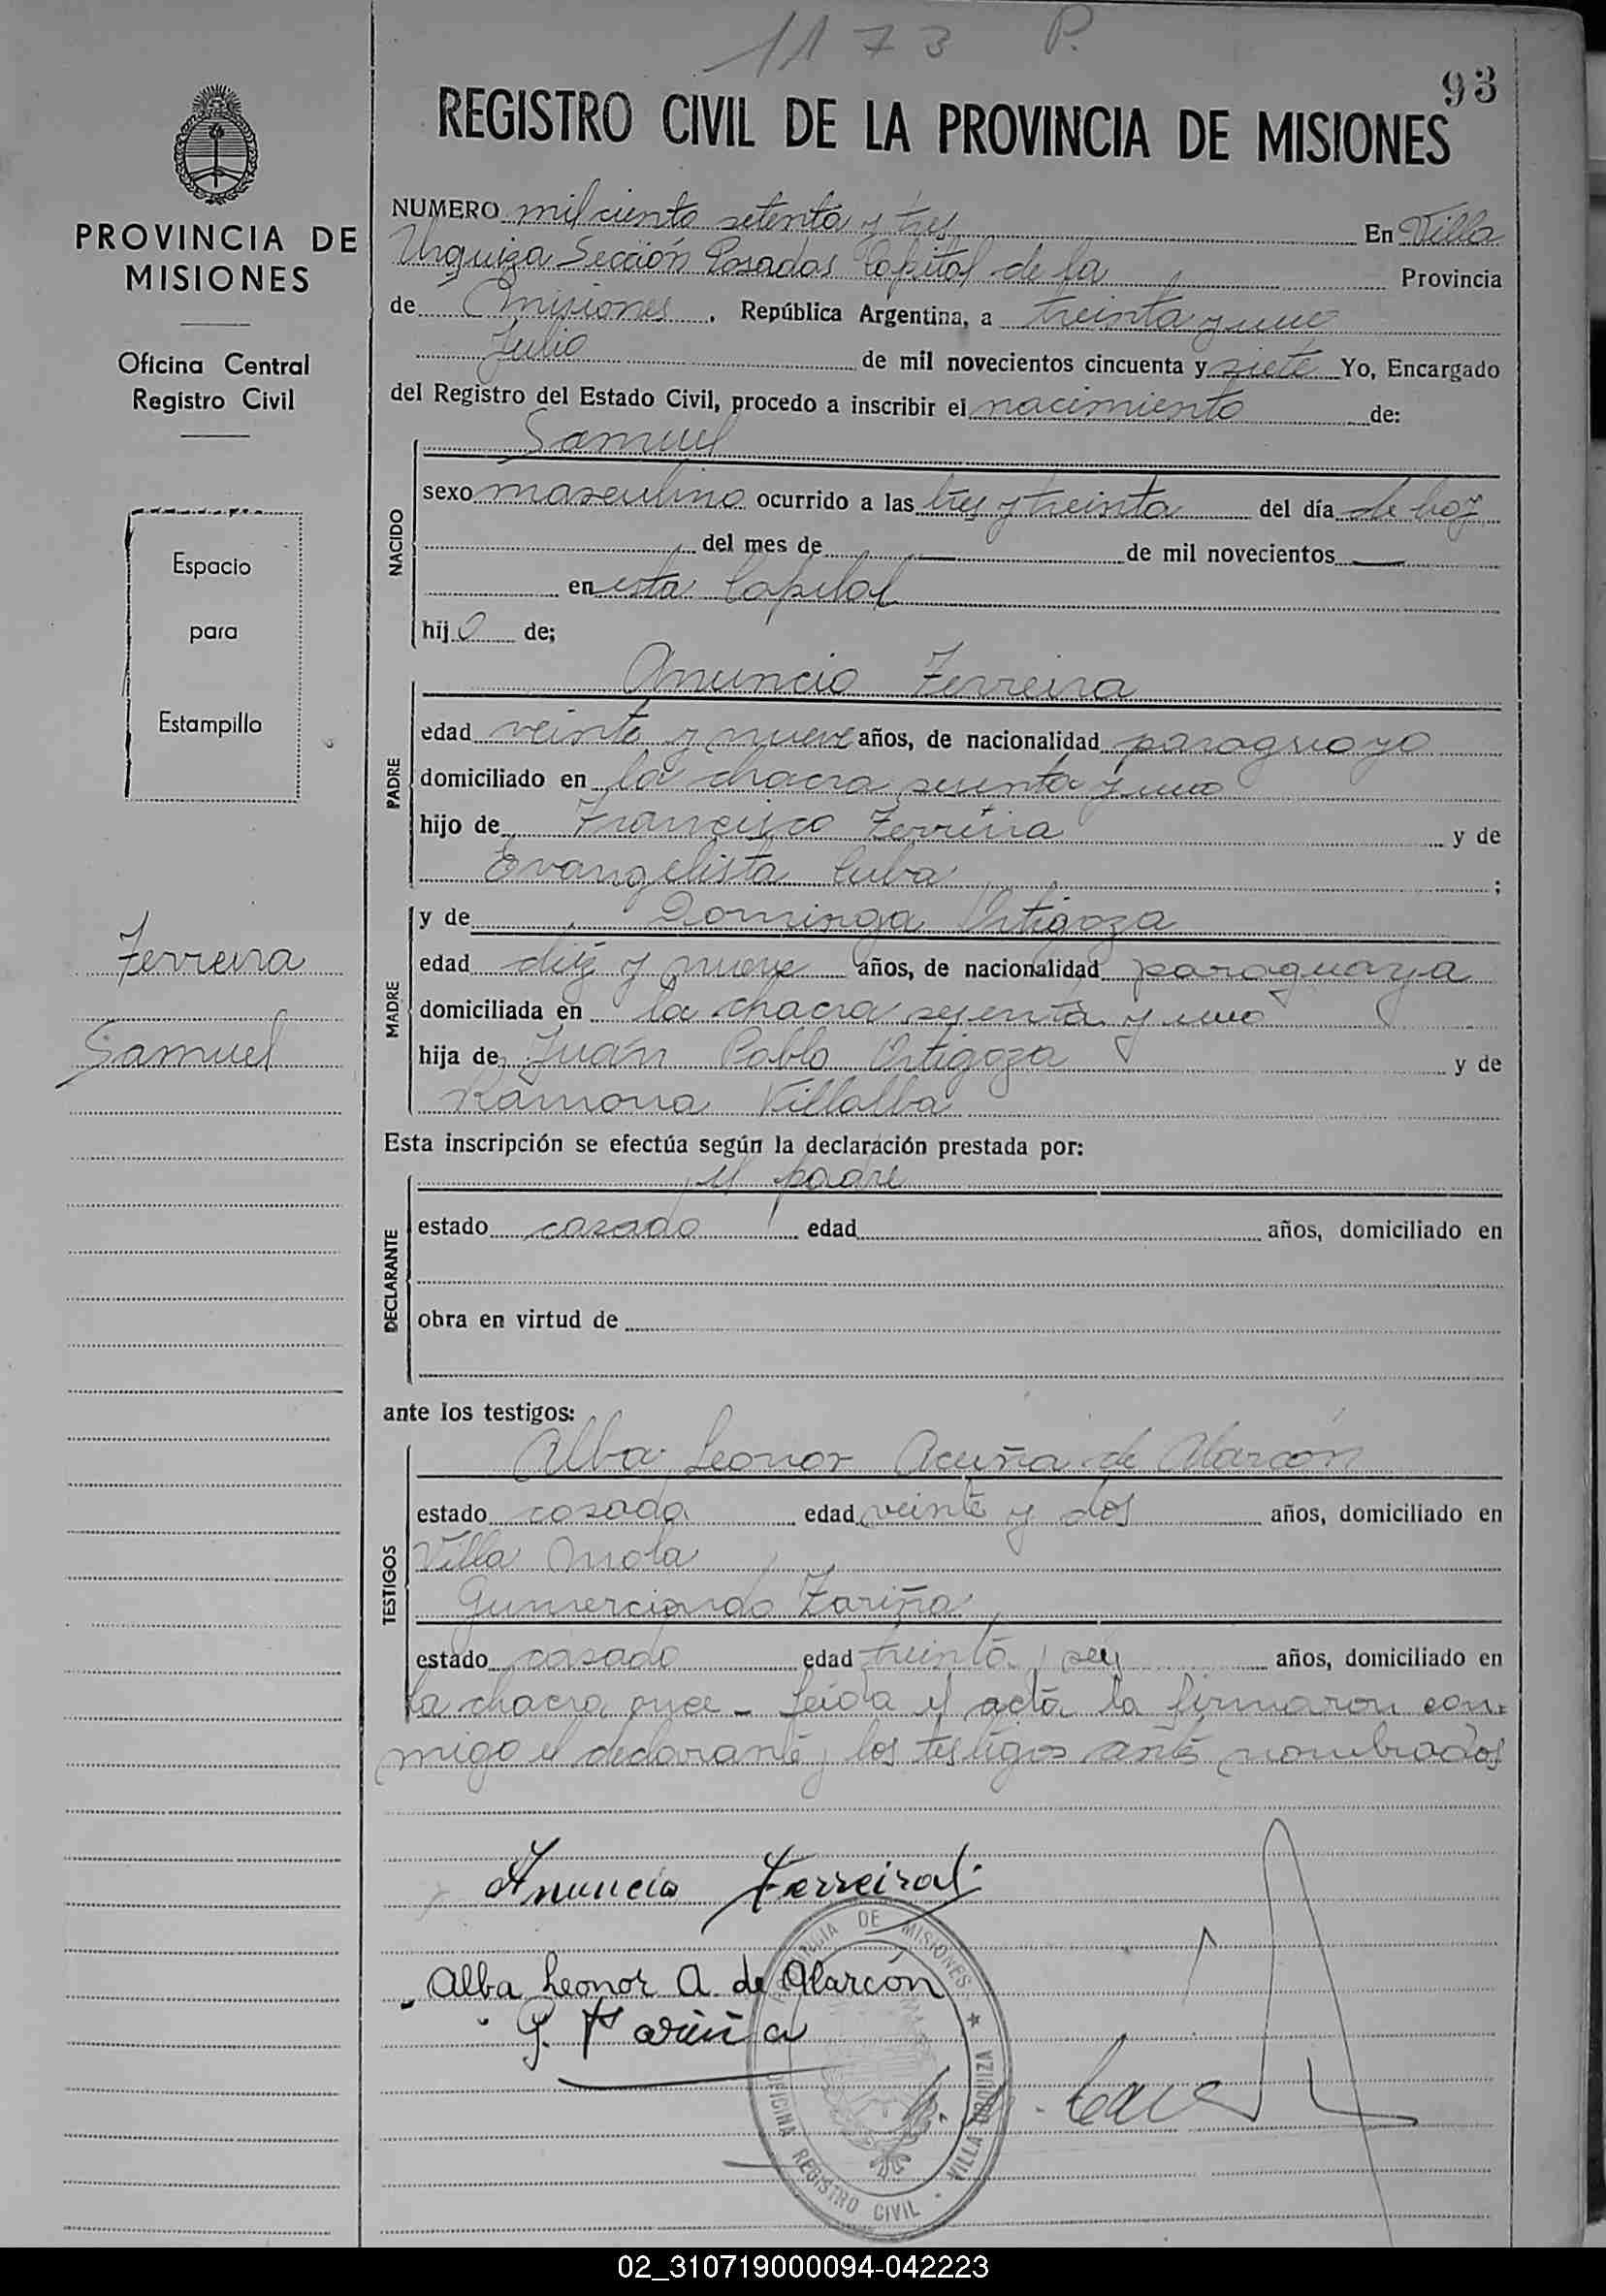 1173 P.
93
REGISTRO CIVIL DE LA PROVINCIA DE MISIONES
PROVINCIA DE
MISIONES
Oficina Central
Registro Civil
Espacio
para
Estampilla
Ferreira
Samuel
NUMERO mil ciento setenta y tres En Villa
Urquiza Sección Posadas Capital de la Provincia
de Misiones. República Argentina, a treinta y uno
Julio de mil novecientos cincuenta y siete Yo, Encargado
del Registro del Estado Civil, procedo a inscribir el nacimiento de:
NACIDO
Samuel
sexo masculino ocurrido a las tres y treinta del día de hoy
del mes de — de mil novecientos —
en esta Capital
hijo de;
PADRE
Anuncio Ferreira
edad veinte y nueve años, de nacionalidad paraguayo
domiciliado en la chacra sesenta y uno
hijo de Francisco Ferreira y de
Evangelista Cuba ;
MADRE
y de Dominga Ortigoza
edad diez y nueve años, de nacionalidad paraguaya
domiciliada en la chacra sesenta y uno
hija de Juán Pablo Ortigoza y de
Ramona Villalba
Esta inscripción se efectúa según la declaración prestada por:
DECLARANTE
el padre
estado casado edad años, domiciliado en
obra en virtud de
ante los testigos:
TESTIGOS
Alba Leonor Acuña de Alarcón
estado casada edad veinte y dos años, domiciliado en
Villa Mola
Gumerciando Fariña
estado casado edad treinta y seis años, domiciliado en
la chacra once - Leída el acta la firmaron con-
migo el declarante y los testigos ante nombrados
Anuncio Ferreira
Alba Leonor A. de Alarcón
G. Fariña
PROVINCIA DE MISIONES
OFICINA REGISTRO CIVIL · VILLA URQUIZA
02_310719000094-042223